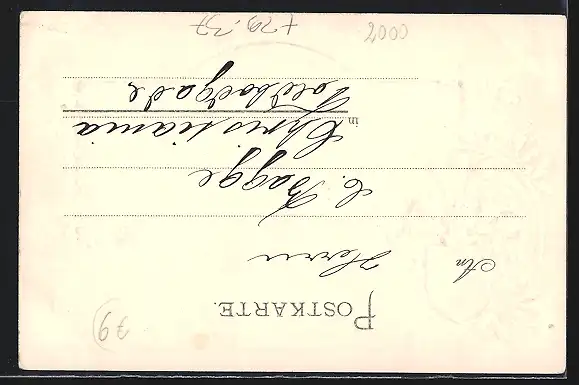 POSTKARTE.
An Herrn
C. Bagge
in Christiania
Toldbodgade
79
2000